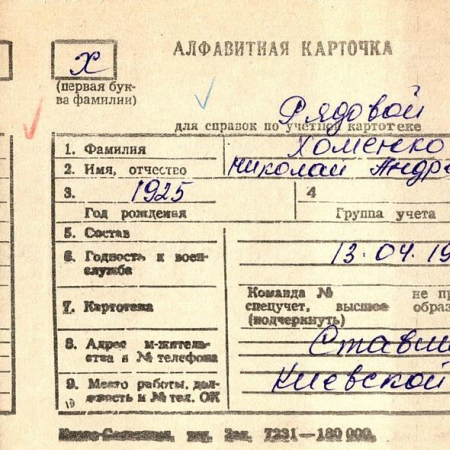 Х
АЛФАВИТНАЯ КАРТОЧКА
(первая бук-
ва фамилии)
Рядовой
для справок по учетной картотеке
1. Фамилия Хоменко
2. Имя, отчество Николай Андре
3. 1925 4
Год рождения Группа учета
5. Состав
6. Годность к воен-
служба 13.04.19
7. Картотека
Команда № не пр
спецучет, высшее образ
(подчеркнуть)
8. Адрес м-житель-
ства и № телефона Ставищ
9. Место работы, дол-
жность и № тел. ОК Киевской
19
Зак. 7231—180 000.